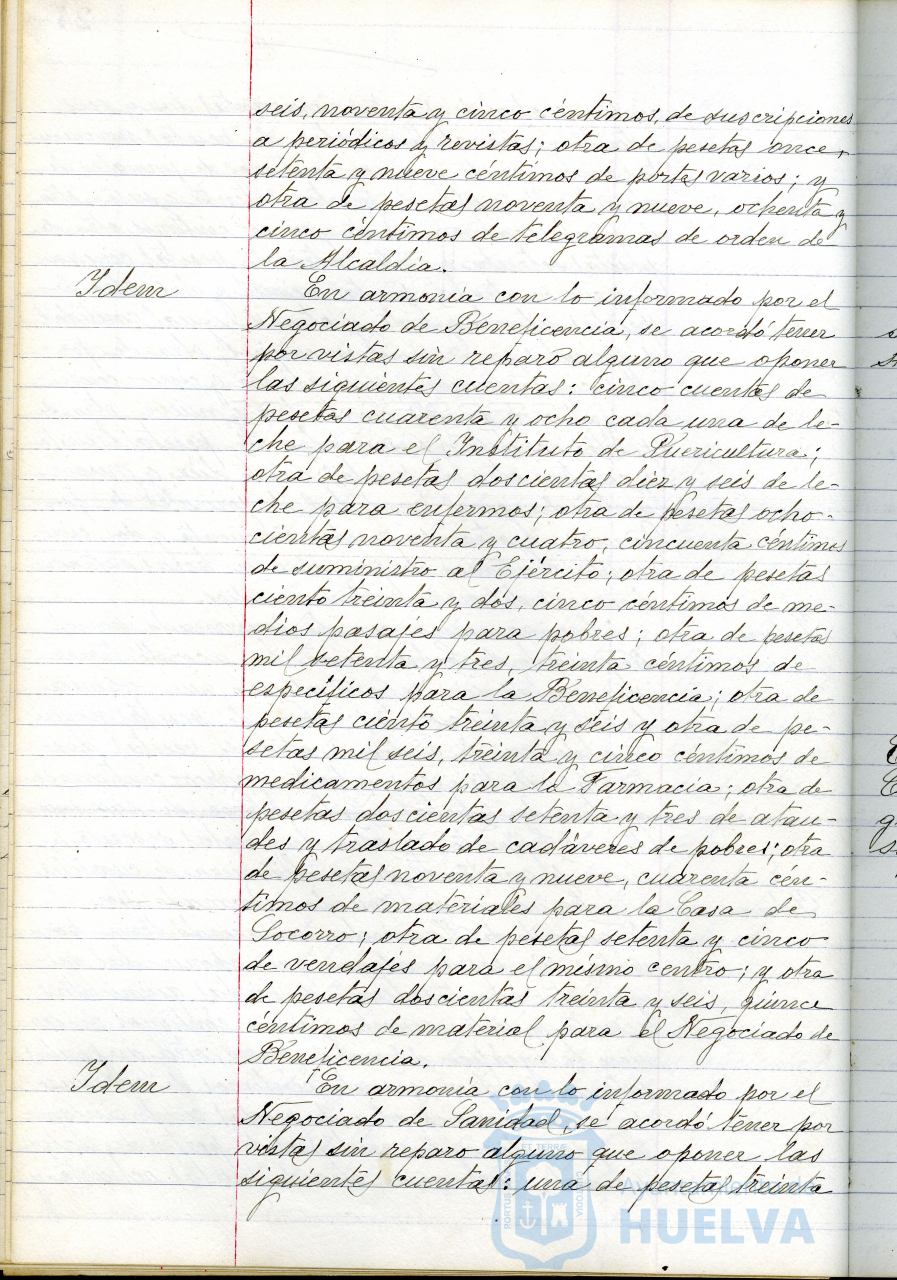 seis, noventa y cinco céntimos, de suscripciones
a periódicos y revistas; otra de pesetas once,
setenta y nueve céntimos de portes varios; y
otra de pesetas noventa y nueve, ochenta y
cinco céntimos de telegramas de orden de
la Alcaldía.
Idem
En armonía con lo informado por el
Negociado de Beneficencia, se acordó tener
por vistas sin reparo alguno que oponer
las siguientes cuentas: cinco cuentas de
pesetas cuarenta y ocho cada una de le-
che para el Instituto de Puericultura;
otra de pesetas doscientas diez y seis de le-
che para enfermos; otra de pesetas ocho-
cientas noventa y cuatro, cincuenta céntimos
de suministro al Ejército; otra de pesetas
ciento treinta y dos, cinco céntimos de me-
dios pasajes para pobres; otra de pesetas
mil setenta y tres, treinta céntimos de
específicos para la Beneficencia; otra de
pesetas ciento treinta y seis y otra de pe-
setas mil seis, treinta y cinco céntimos de
medicamentos para la Farmacia; otra de
pesetas doscientas setenta y tres de ataú-
des y traslado de cadáveres de pobres; otra
de pesetas noventa y nueve, cuarenta cén-
timos de materiales para la Casa de
Socorro; otra de pesetas setenta y cinco
de vendajes para el mismo centro; y otra
de pesetas doscientas treinta y seis, quince
céntimos de material para el Negociado de
Beneficencia.
Idem
En armonía con lo informado por el
Negociado de Sanidad, se acordó tener por
vistas sin reparo alguno que oponer las
siguientes cuentas: una de pesetas treinta
HUELVA